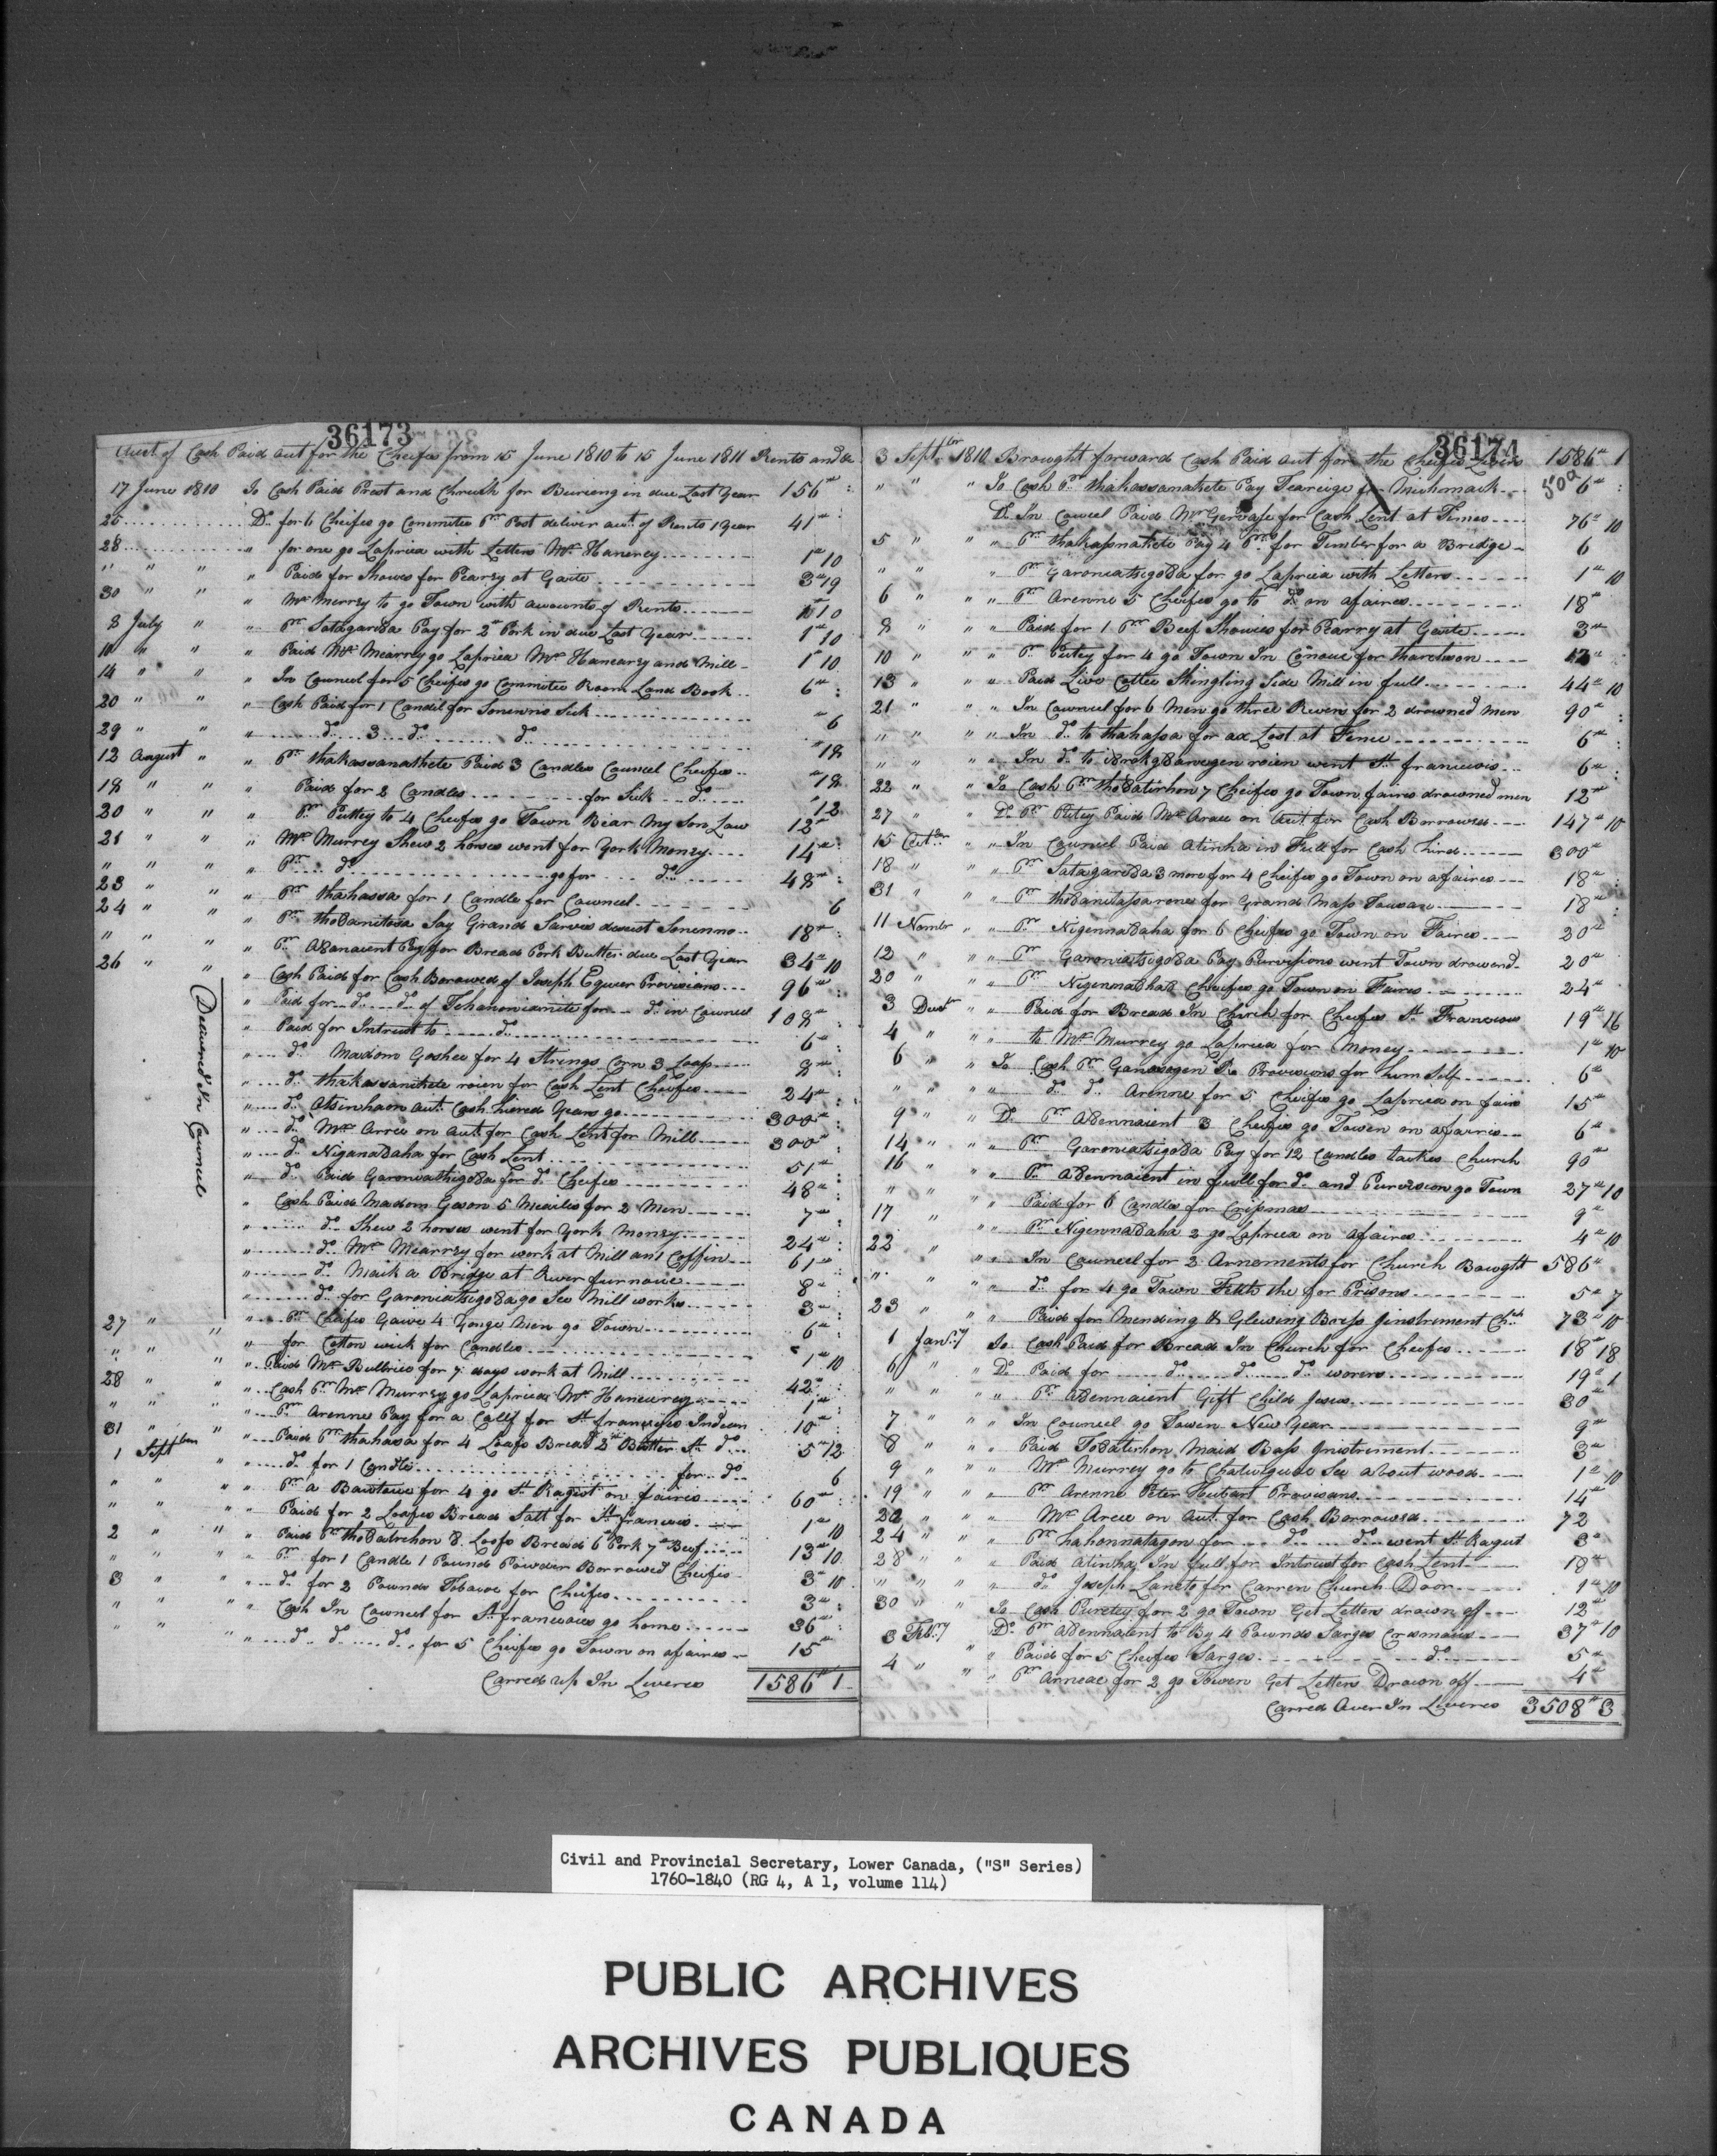 36173
Acct of Cash Paid out for the Cheifes from 15 June 1810 to 15 June 1811 Rents and &c
17 June 1810 To Cash Paid Prest and Chrush for Buireng in due Last Year 156" :
25 Do for 6 Cheifes go Commites Pr Post deliver aut of Rents 1 Year 41" :
28 " for one go Lapriea with Letters Mr Hanerey 1" 10
" " " " Paid for Showes for Pearsy at Gaite 3" 19
30 " " " Mr Merrey to go Town with acounts of Rents 10
8 July " " Pr Satagariba Pay for 2" Pork in due Last Year 1" 10
10 " " " Paid Mr Mearrey go Lapriea Mr Hanearsy and Mill 1" 10
14 " " " In Council for 5 Cheifes go Commites Room Land Book 6" :
20 " " " Cash Paid for 1 Candel for Sonewno Sick " 6
29 " " " do 3 do do " 18
12 August " " Pr thakassanathete Paid 3 Candles Councel Cheifes " 18
18 " " " Paid for 2 Candles for Sick do " 12
20 " " " Pr Puttey to 4 Cheifes go Town Biar My Son Law 12"
21 " " " Mr Murrey Shew 2 horses went for York Money 14" :
" " " " Pr do go for do 48" :
23 " " " Pr thahassa for 1 Candle for Cawneel 6
24 " " " Pr thoDanitosa Say Grand Sarvis deseist Sonenno 18" :
" " " " Pr ADanaient Pay for Bread Pork Butter due Last Year 34" 10
26 " " " Cash Paid for Cash Borowed of Joseph Equier Provisians 96" :
Deaiined In Councel
" Paid for do do of Tehanoniamite for do in Cawneel 108" :
" Paid for Intrust to do 6" :
" do Madom Goshee for 4 Strings Corn 3 Loaf 8" :
" do thakassanitete roien for Cash Lent Cheifes 24" :
" do Atsinhaon aut. Cash hiered Years go 300" :
" do Mr Arree on aut for Cash Lent for Mill 300" :
" do NiganaDaha for Cash Lent 51" :
" do Paid GaroniathigoDa for do Cheifes 48" :
" Cash Paid Madom Geson 5 Meailes for 2 Men 7" :
" do Shew 2 horses went for York Money 24" :
" do Mr Mearrey for work at Mill and Coffin 61" :
" do Maik a Bridge at River furnaice 8" :
" do for GaroniatsigoDa go See Mill works 3" :
27 " " " Pr Cheifes Gaive 4 Yonge Men go Town 6" :
" " " " for Cotton wick for Candles 1" 10
" Paid Mr Bullries for 7 days work at Mill 42" :
28 " " " Cash Pr Mr Murrey go Lapriea Mr Haneurey 1" :
" " " " Pr Arenne Pay for a Calf for St fransyes Indean 10" :
31 " " " Paid Pr thahasa for 4 Loafs Bread 2" Butter St do 5" 12
1 Septber " " do for 1 Candle for do 6
" " " " Pr a Bawtawe for 4 go St Ragist on faires 60" :
" " " " Paid for 2 Loafes Bread Salt for St francwis 1" 10
2 " " " Paid Pr thoDatirhon 8 Loafs Bread 6 Pork 7" Beef 13" 10
" " " " Pr for 1 Candle 1 Pound Powder Borrowed Cheifes 3" 10
3 " " " do for 2 Pounds Tobacoe for Cheifes 3" :
" " " " Cash In Cawneel for St francwaies go home 36" :
" " " " do do do for 5 Cheifes go Town on afaires 15"
Carred up In Liveres 1586" 1
36174
3 Septber 1810 Brought forward Cash Paid aut for the Cheifes Livers 1586" 1
" " " To Cash Pr thakassanathete Pay Teareige for Mickmack 6" :
500
Do In Cawcel Paid Mr Gervase for Cash Lent at Times 76" 10
5 " " " Pr thakassnathete Pay 4 Prs for Timber for a Bredge 6
" " " Pr GaroniatsigoDa for go Lapriea with Letters 1" 10
6 " " " Pr Arenne 5 Cheifes go to do on afaires 18"
8 " " " Paid for 1 Pr Beef Showies for Pearry at Gaite 3"
10 " " " Pr Putey for 4 go Town In Canoue for tharehwon 12" :
13 " " " Paid Live Cottee Shingling Side Mill in full 44" 10
21 " " " In Cawncel for 6 Men go three Rivers for 2 drowned Men 90" :
" " " " In do to thahassa for ax Lost at Fence 6" :
" " " " In do to roien went St francwis 6" :
22 " " To Cash Pr thoDatirhon 7 Cheifes go Town faires drowned men 12"
27 " " Do Pr Putey Paid Mr Arau on Aut for Cash Borrowed 147" 10
15 Octber " " In Cawncel Paid Atinha in Full for Cash hird 300"
18 " " " Pr SatagariDa 3 more for 4 Cheifes go Town on afaires 18" :
31 " " " Pr thoDanitassarones for Grand Mass Tousan 18" :
11 Nombr " " Pr NigennaDaha for 6 Cheifes go Town on Faires 20"
12 " " " Pr GaroniatsigoDa Pay Purvisions went Town drawend 20"
20 " " " Pr NigennaDaha 8 Cheifes go Town on Faires 24"
3 Decbr " " Paid for Bread In Chirch for Cheifes St Francwis 19" 16
4 " " " to Mr Murrey go Lapriea for Money 1" 10
6 " " To Cash Pr Ganasogen Pr Provisions for him Self 6"
" " " " do do Arenne for 5 Cheifes go Lapriea on fairs 15"
9 " " Do Pr ADennaient 3 Cheifes go Towen on afairres 6"
14 " " " Pr GaroniatsigoDa Pay for 12 Candles taikes Church 90"
16 " " " Pr ADennaient in full for do and Purvision go Town 27" 10
" " " " Paid for 6 Candles for Cripmas 9"
17 " " " Pr NigennaDaha 2 go Lapriea on afaires 4" 10
22 " " " In Cawncel for 2 Arnements for Church Bawght 586"
" " " " do for 4 go Town Feith the for Prisons 5" 7
23 " " " Paid for Mending & Glewing Boass ginstriment Chch 73" 10
1 Jany To Cash Paid for Bread In Church for Cheifes 18" 18
6 " " Do Paid for do do do worens 19" 1
" " " " Pr ADennaient Gift Child Jesus 30"
7 " " " In Councel go Towen New Year 9"
8 " " " Paid ToDaterhon Maid Bass gnistriment 3"
9 " " " Mr Murrey go to Chatwiguae See about wood 1" 10
19 " " " Pr Arenne Peter Heubart Provisans 14"
22 " " " Mr Aree on Aut for Cash Borrowed 72
24 " " " Pr hahonnatagon for do do went St Ragust 3"
28 " " " Paid Atinha In full for Intrust for Cash Lent 18"
" " " " do Joseph Lanets for Carren Church Door 1" 10
30 " " To Cash Puretey for 2 go Town Get Letters drawn off 12"
3 Feby Do Pr ADennaient to By 4 Pawnds Sarges Cresmaus 37" 10
4 " " " Paid for 5 Cheifes Sarges do 5"
" Pr Arneae for 2 go Towen Get Letters Drawn off 4"
Carred Aver In Liveres 3508" 3
Civil and Provincial Secretary, Lower Canada, ("S" Series)
1760-1840 (RG 4, A 1, volume 114)
PUBLIC ARCHIVES
ARCHIVES PUBLIQUES
CANADA